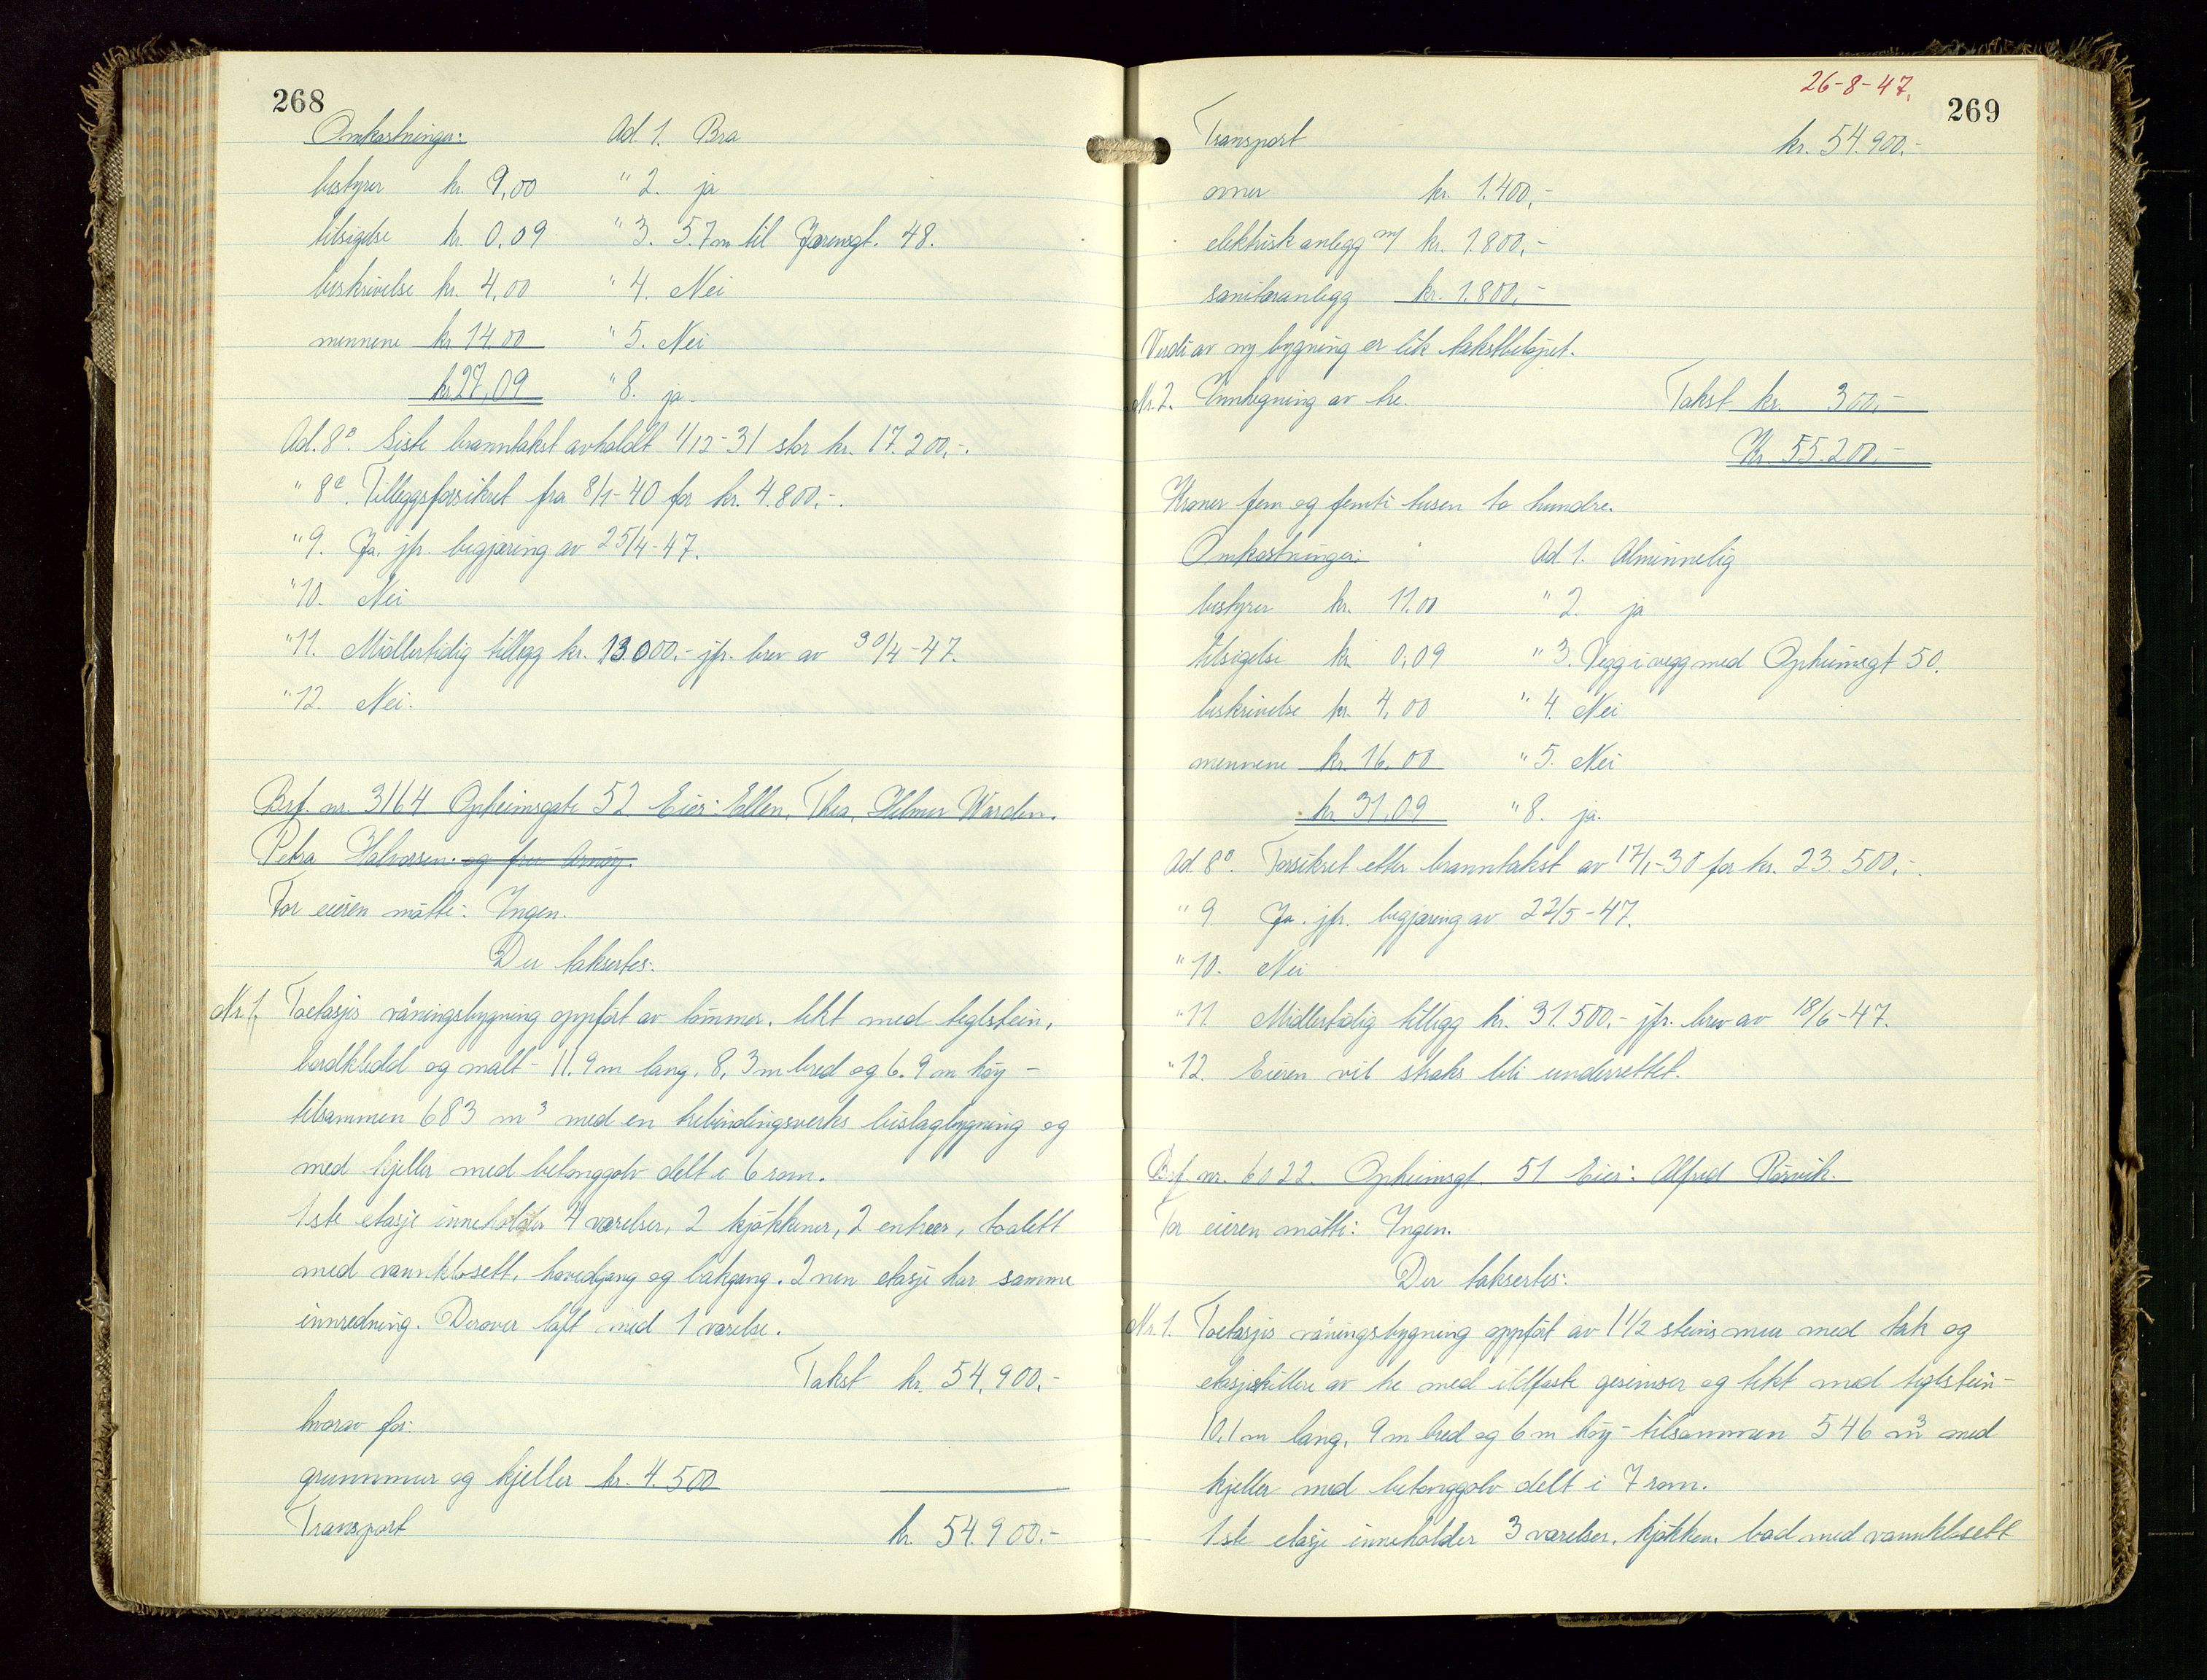 268
Omkostninger: Ad 1. Bra
bestyrer kr. 9,00 " 2. ja
tilsigelse kr. 0,09 " 3. 5.7m til Jarensgt. 48.
beskrivelse kr. 4,00 " 4. Nei
mennene kr. 14.00 " 5. Nei
kr. 27,09 " 8. ja.
Ad. 8ᵃ. Siste branntakst avholdt 1/12-31 stor kr. 17.200,-.
" 8ᶜ. Tilleggsforsikret fra 8/1-40 for kr. 4.800,-.
" 9. Ja. jfr. begjæring av 25/4-47.
" 10. Nei
" 11. Midlertidig tillegg kr. 13.000.- jfr. brev av 30/4-47.
" 12. Nei.
Brf. nr. 3164 Opheimsgate 52 Eier: Ellen, Thea, Hilmer Warden.
Petra Halvorsen. og fru Arnøy.
For eieren møtte: Ingen.
Der taksertes:
Nr. 1. Toetasjes våningsbygning oppført av tømmer, tekt med teglstein,
bordkledd og malt - 11.9m lang, 8,3m bred og 6.9m høy -
tilsammen 683 m³ med en trebindingsverks bislagbygning og
med kjeller med betonggolv delt i 6 rom.
1ste etasje inneholder 4 værelser, 2 kjøkkener, 2 entreer, toalett
med vannklosett, hovedgang og bakgang. 2nen etasje har samme
innredning. Derover loft med 1 værelse.
Takst kr. 54.900,-
hvorav for:
grunnmur og kjeller kr. 4.500
Transport kr. 54.900.-
26-8-47.
269
Transport kr. 54.900,-
ovner kr. 1.400,-
elektrisk anlegg m/ kr. 1.800,-
sanitæranlegg kr. 1.800,-
Verdi av ny bygning er lik takstbeløpet.
Nr. 2. Innhegning av tre. Takst kr. 300,-
Kr. 55.200,-
Kroner fem og femti tusen to hundre.
Omkostninger: Ad 1. Alminnelig
bestyrer kr. 11.00 " 2. ja
tilsigelse kr. 0,09 " 3. Vegg i vegg med Opheimsgt 50.
beskrivelse kr. 4,00 " 4. Nei
mennene kr. 16.00 " 5. Nei
kr. 31,09 " 8. ja.
Ad. 8ᵃ. Forsikret etter branntakst av 17/1-30 for kr. 23.500,-.
" 9 Ja. jfr. begjæring av 22/5-47.
" 10. Nei
" 11. Midlertidig tillegg kr. 31.500.- jfr. brev av 18/6-47.
" 12. Eieren vil straks bli underrettet.
Brf. nr. 6022. Opheimsgt. 51 Eier: Alfred Rørvik.
For eieren møtte: Ingen.
Der taksertes:
Nr. 1. Toetasjes våningsbygning oppført av 1 1/2 steins mur med tak og
etasjeskillere av tre med ildfaste gesimser og tekt med teglstein -
10,1m lang, 9m bred og 6m høy - tilsammen 546 m³ med
kjeller med betonggolv delt i 7 rom.
1ste etasje inneholder 3 værelser, kjøkken, bad med vannklosett